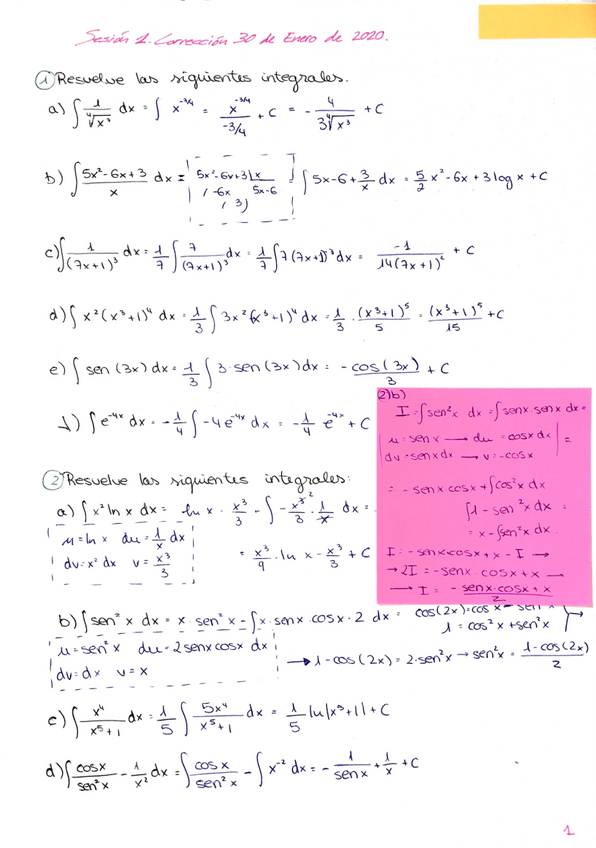 Sesión 1. Corrección 30 de Enero de 2020.
① Resuelve las siguientes integrales.
a) ∫ 1/⁴√x³ dx = ∫ x^-3/4 = x^-3/4 / -3/4 + C = - 4/3⁴√x³ + C
b) ∫ 5x²-6x+3 / x dx = 5x²-6x+3 | x = ∫ 5x-6+3/x dx = 5/2 x²-6x+3 log x + C
/ -6x 5x-6
/ 3)
c) ∫ 1/(7x+1)³ dx = 1/7 ∫ 7/(7x+1)³ dx = 1/7 ∫ 7(7x+1)^-3 dx = -1/14(7x+1)² + C
d) ∫ x²(x³+1)⁴ dx = 1/3 ∫ 3x²(x³+1)⁴ dx = 1/3 · (x³+1)⁵/5 = (x³+1)⁵/15 + C
e) ∫ sen (3x) dx = 1/3 ∫ 3·sen(3x) dx = - cos(3x)/3 + C
f) ∫ e^-4x dx = -1/4 ∫ -4e^-4x dx = -1/4 e^-4x + C
② Resuelve las siguientes integrales:
a) ∫ x² ln x dx = ln x · x³/3 - ∫ - x³/3 · 1/x dx =
u = ln x du = 1/x dx
dv = x² dx v = x³/3
= x³/9 · ln x - x³/3 + C
2)b)
I = ∫ sen²x dx = ∫ senx·senx dx =
u = senx → du = cosx dx
dv = senx dx → v = -cosx
=
= - senx cosx + ∫ cos²x dx
∫ 1 - sen²x dx =
= x - ∫ sen²x dx
I = - senx cosx + x - I →
→ 2I = - senx · cosx + x →
→ I = - senx·cosx + x / 2
b) ∫ sen²x dx = x · sen²x - ∫ x · senx · cosx · 2 dx = cos(2x) = cos²x - sen²x
1 = cos²x + sen²x
u = sen²x du = 2senx cosx dx
dv = dx v = x
→ 1 - cos(2x) = 2·sen²x → sen²x = 1-cos(2x)/2
c) ∫ x⁴/x⁵+1 dx = 1/5 ∫ 5x⁴/x⁵+1 dx = 1/5 ln|x⁵+1| + C
d) ∫ cosx/sen²x - 1/x² dx = ∫ cosx/sen²x - ∫ x^-2 dx = - 1/senx + 1/x + C
1